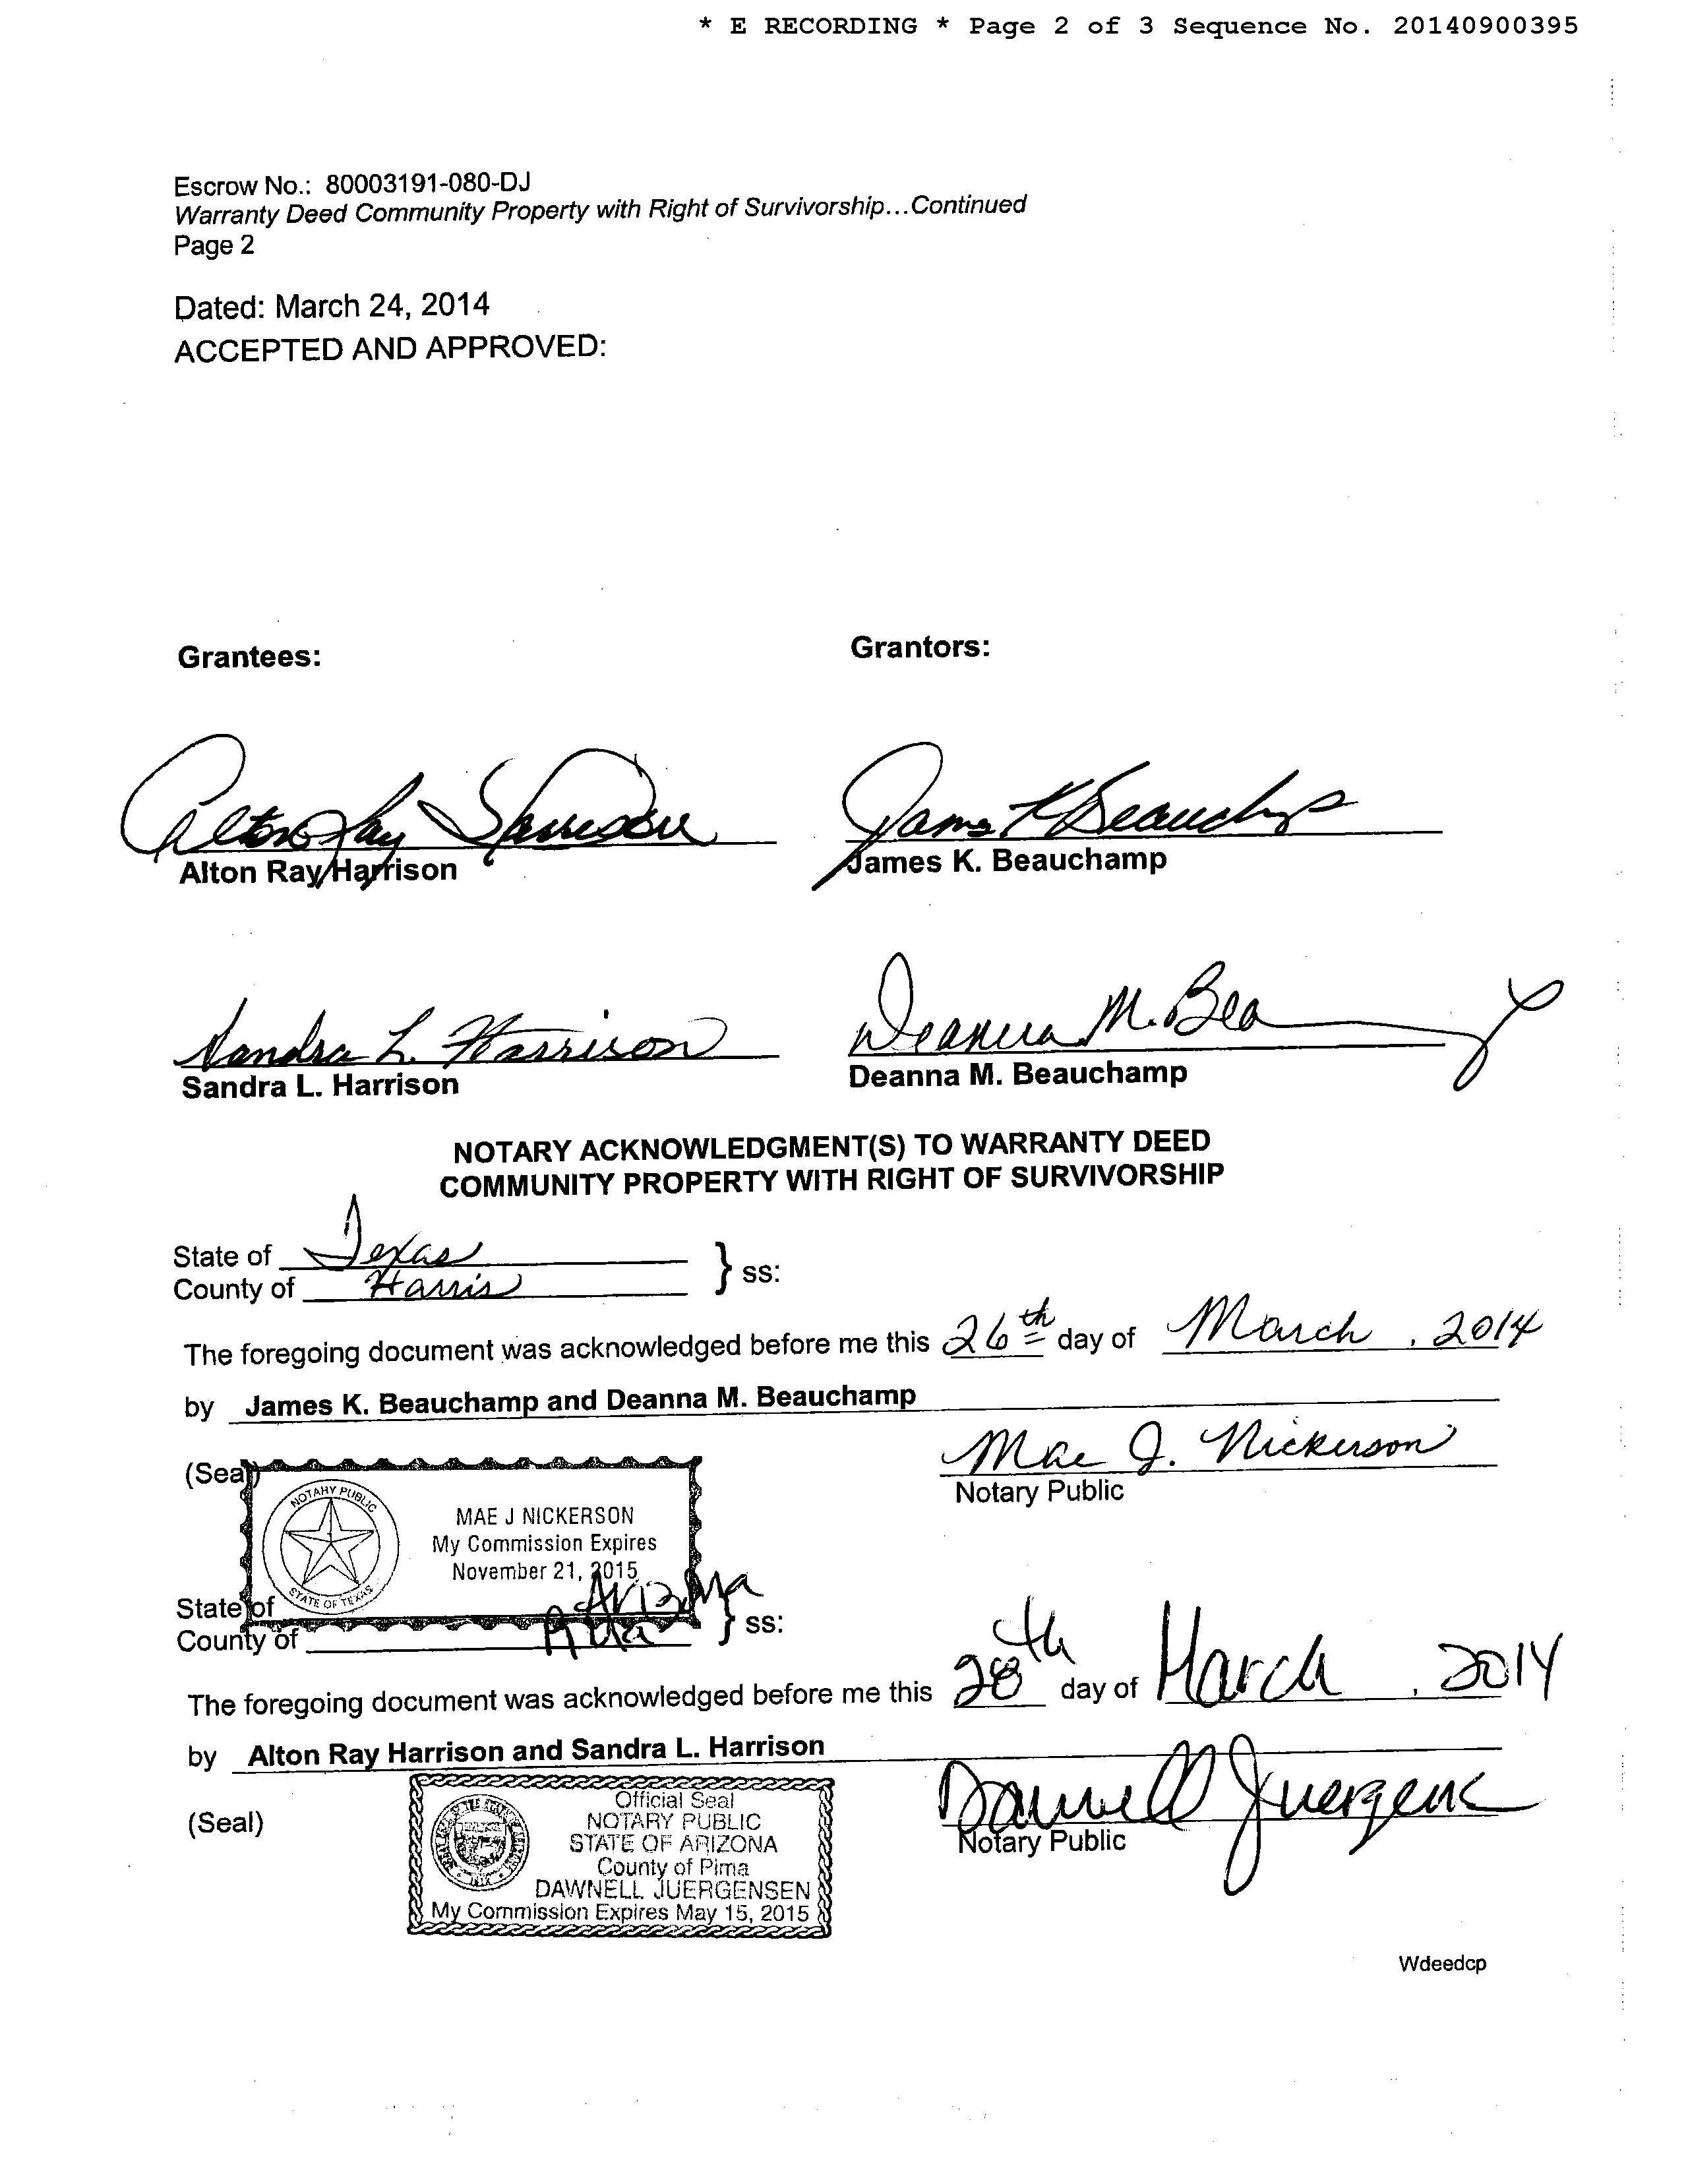 * E RECORDING * Page 2 of 3 Sequence No. 20140900395
Escrow No.: 80003191-080-DJ
Warranty Deed Community Property with Right of Survivorship...Continued
Page 2
Dated: March 24, 2014
ACCEPTED AND APPROVED:
Grantees: Grantors:
Alton Ray Harrison James K Beauchamp
Alton Ray Harrison James K. Beauchamp
Sandra L. Harrison Deanna M. Bea
Sandra L. Harrison Deanna M. Beauchamp
NOTARY ACKNOWLEDGMENT(S) TO WARRANTY DEED
COMMUNITY PROPERTY WITH RIGHT OF SURVIVORSHIP
State of Texas
County of Harris } ss:
The foregoing document was acknowledged before me this 26th day of March, 2014
by James K. Beauchamp and Deanna M. Beauchamp
(Seal) Mae J. Nickerson
Notary Public
NOTARY PUBLIC
STATE OF TEXAS
MAE J NICKERSON
My Commission Expires
November 21, 2015
State of Arizona
County of } ss:
The foregoing document was acknowledged before me this 28th day of March, 2014
by Alton Ray Harrison and Sandra L. Harrison
(Seal) Dawnell Juergens
Notary Public
Official Seal
NOTARY PUBLIC
STATE OF ARIZONA
County of Pima
DAWNELL JUERGENSEN
My Commission Expires May 15, 2015
Wdeedcp